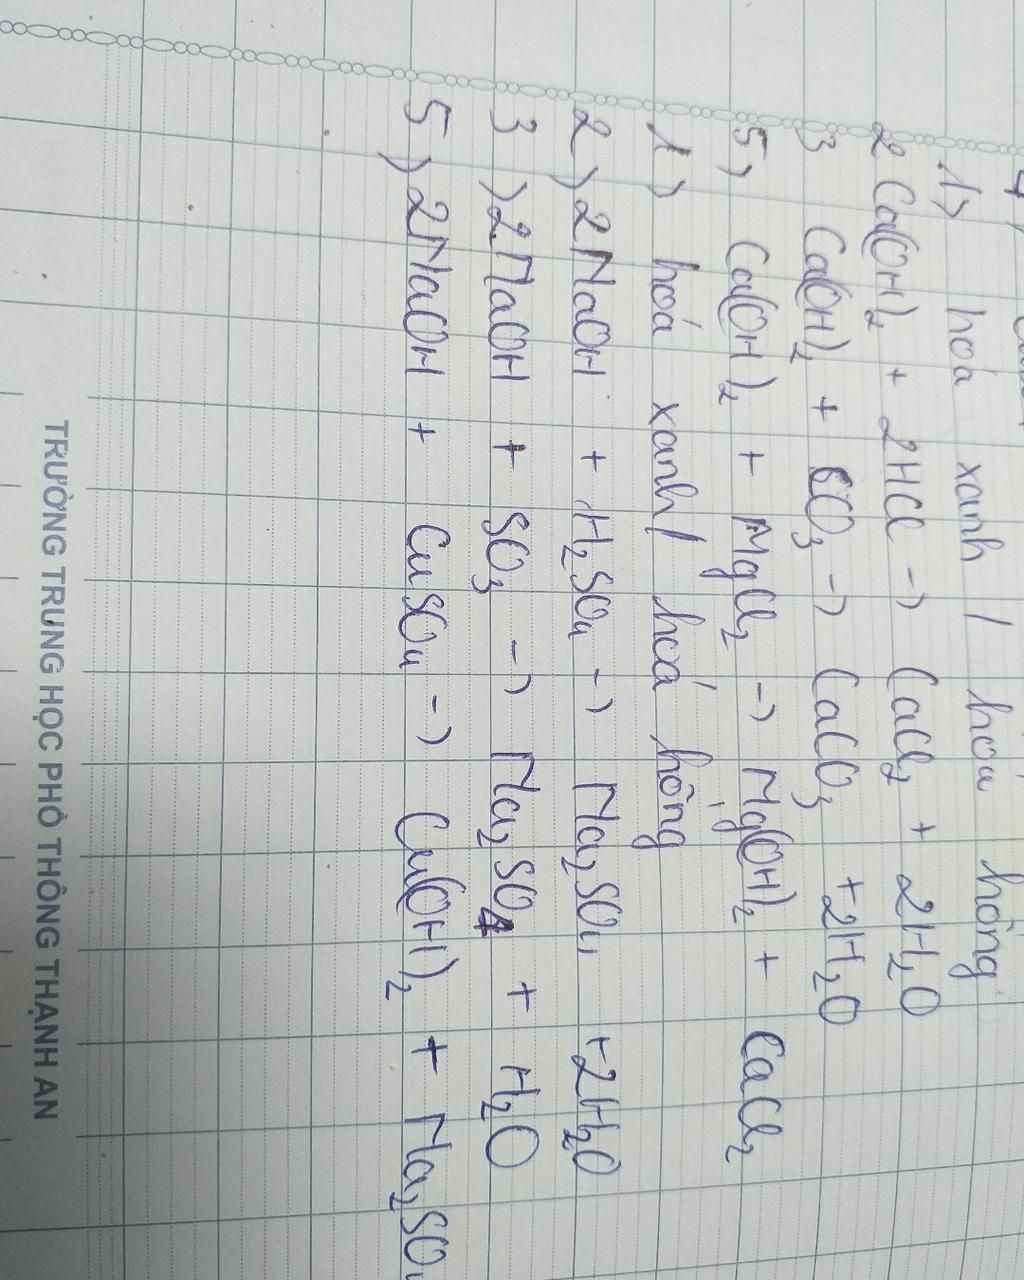 1) hoá xanh / hoá hồng
2 Ca(OH)₂ + 2HCl → CaCl₂ + 2H₂O
3 Ca(OH)₂ + CO₃ → CaCO₃ + 2H₂O
5) Ca(OH)₂ + MgCl₂ → Mg(OH)₂ + CaCl₂
1) hoá xanh / hoá hồng
2) 2NaOH + H₂SO₄ → Na₂SO₄ + 2H₂O
3) 2NaOH + SO₃ → Na₂SO₄ + H₂O
5) 2NaOH + CuSO₄ → Cu(OH)₂ + Na₂SO₄
TRƯỜNG TRUNG HỌC PHỔ THÔNG THẠNH AN